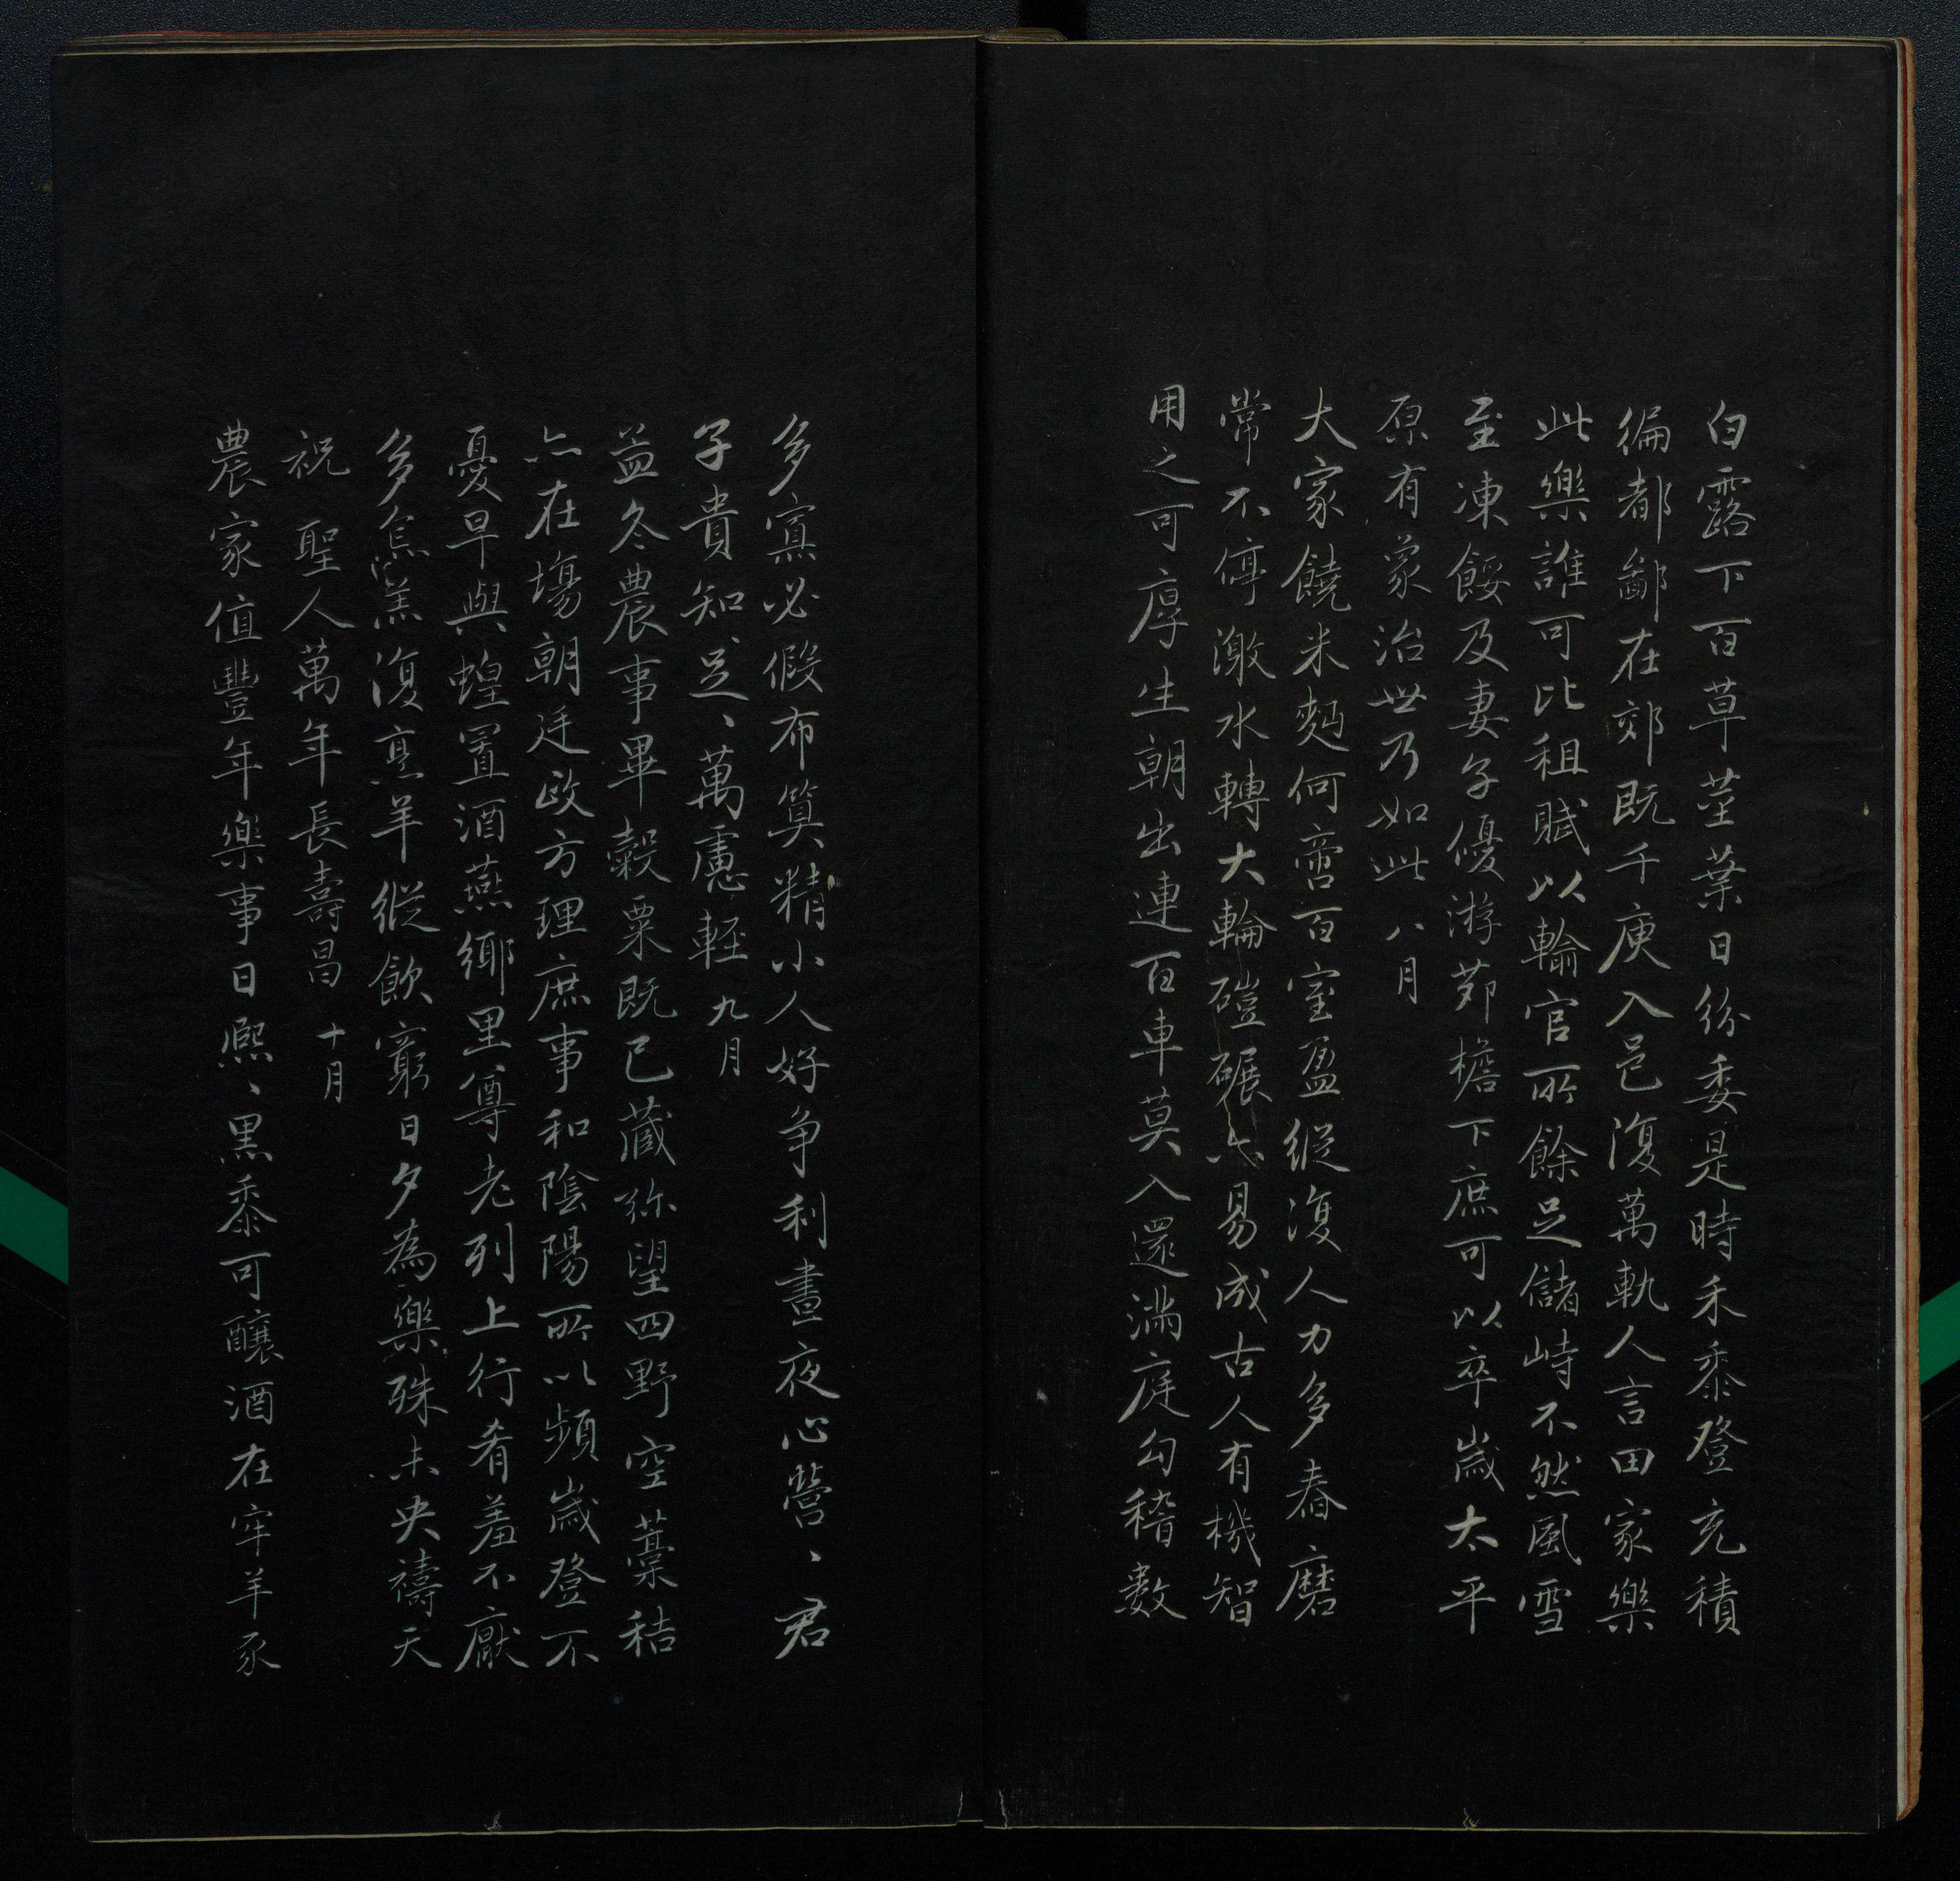 白露下百草莖葉日紛委是時禾黍登充積
徧都鄙在郊既千庾入邑復萬軌人言田家樂
此樂誰可比租賦以輸官所餘足儲峙不然風雪
至凍餒及妻子優游茆檐下庶可以卒歲太平
原有象治世乃如此 八月
大家饒米麪何啻百室盈縱復人力多舂磨
常不停激水轉大輪磑碾亦易成古人有機智
用之可厚生朝出連百車莫入還滿庭勾稽數
多寡必假布算精小人好争利晝夜心營、君
子貴知足、萬慮輕 九月
孟冬農事畢穀粟既已藏弥望四野空藁秸
亦在場朝廷政方理庶事和陰陽所以頻歲登不
憂旱與蝗置酒燕鄉里尊老列上行肴羞不厭
多炰羔復烹羊縱飲窮日夕為樂殊未央禱天
祝 聖人萬年長壽昌 十月
農家值豐年樂事日熙、黑黍可釀酒在牢羊豕